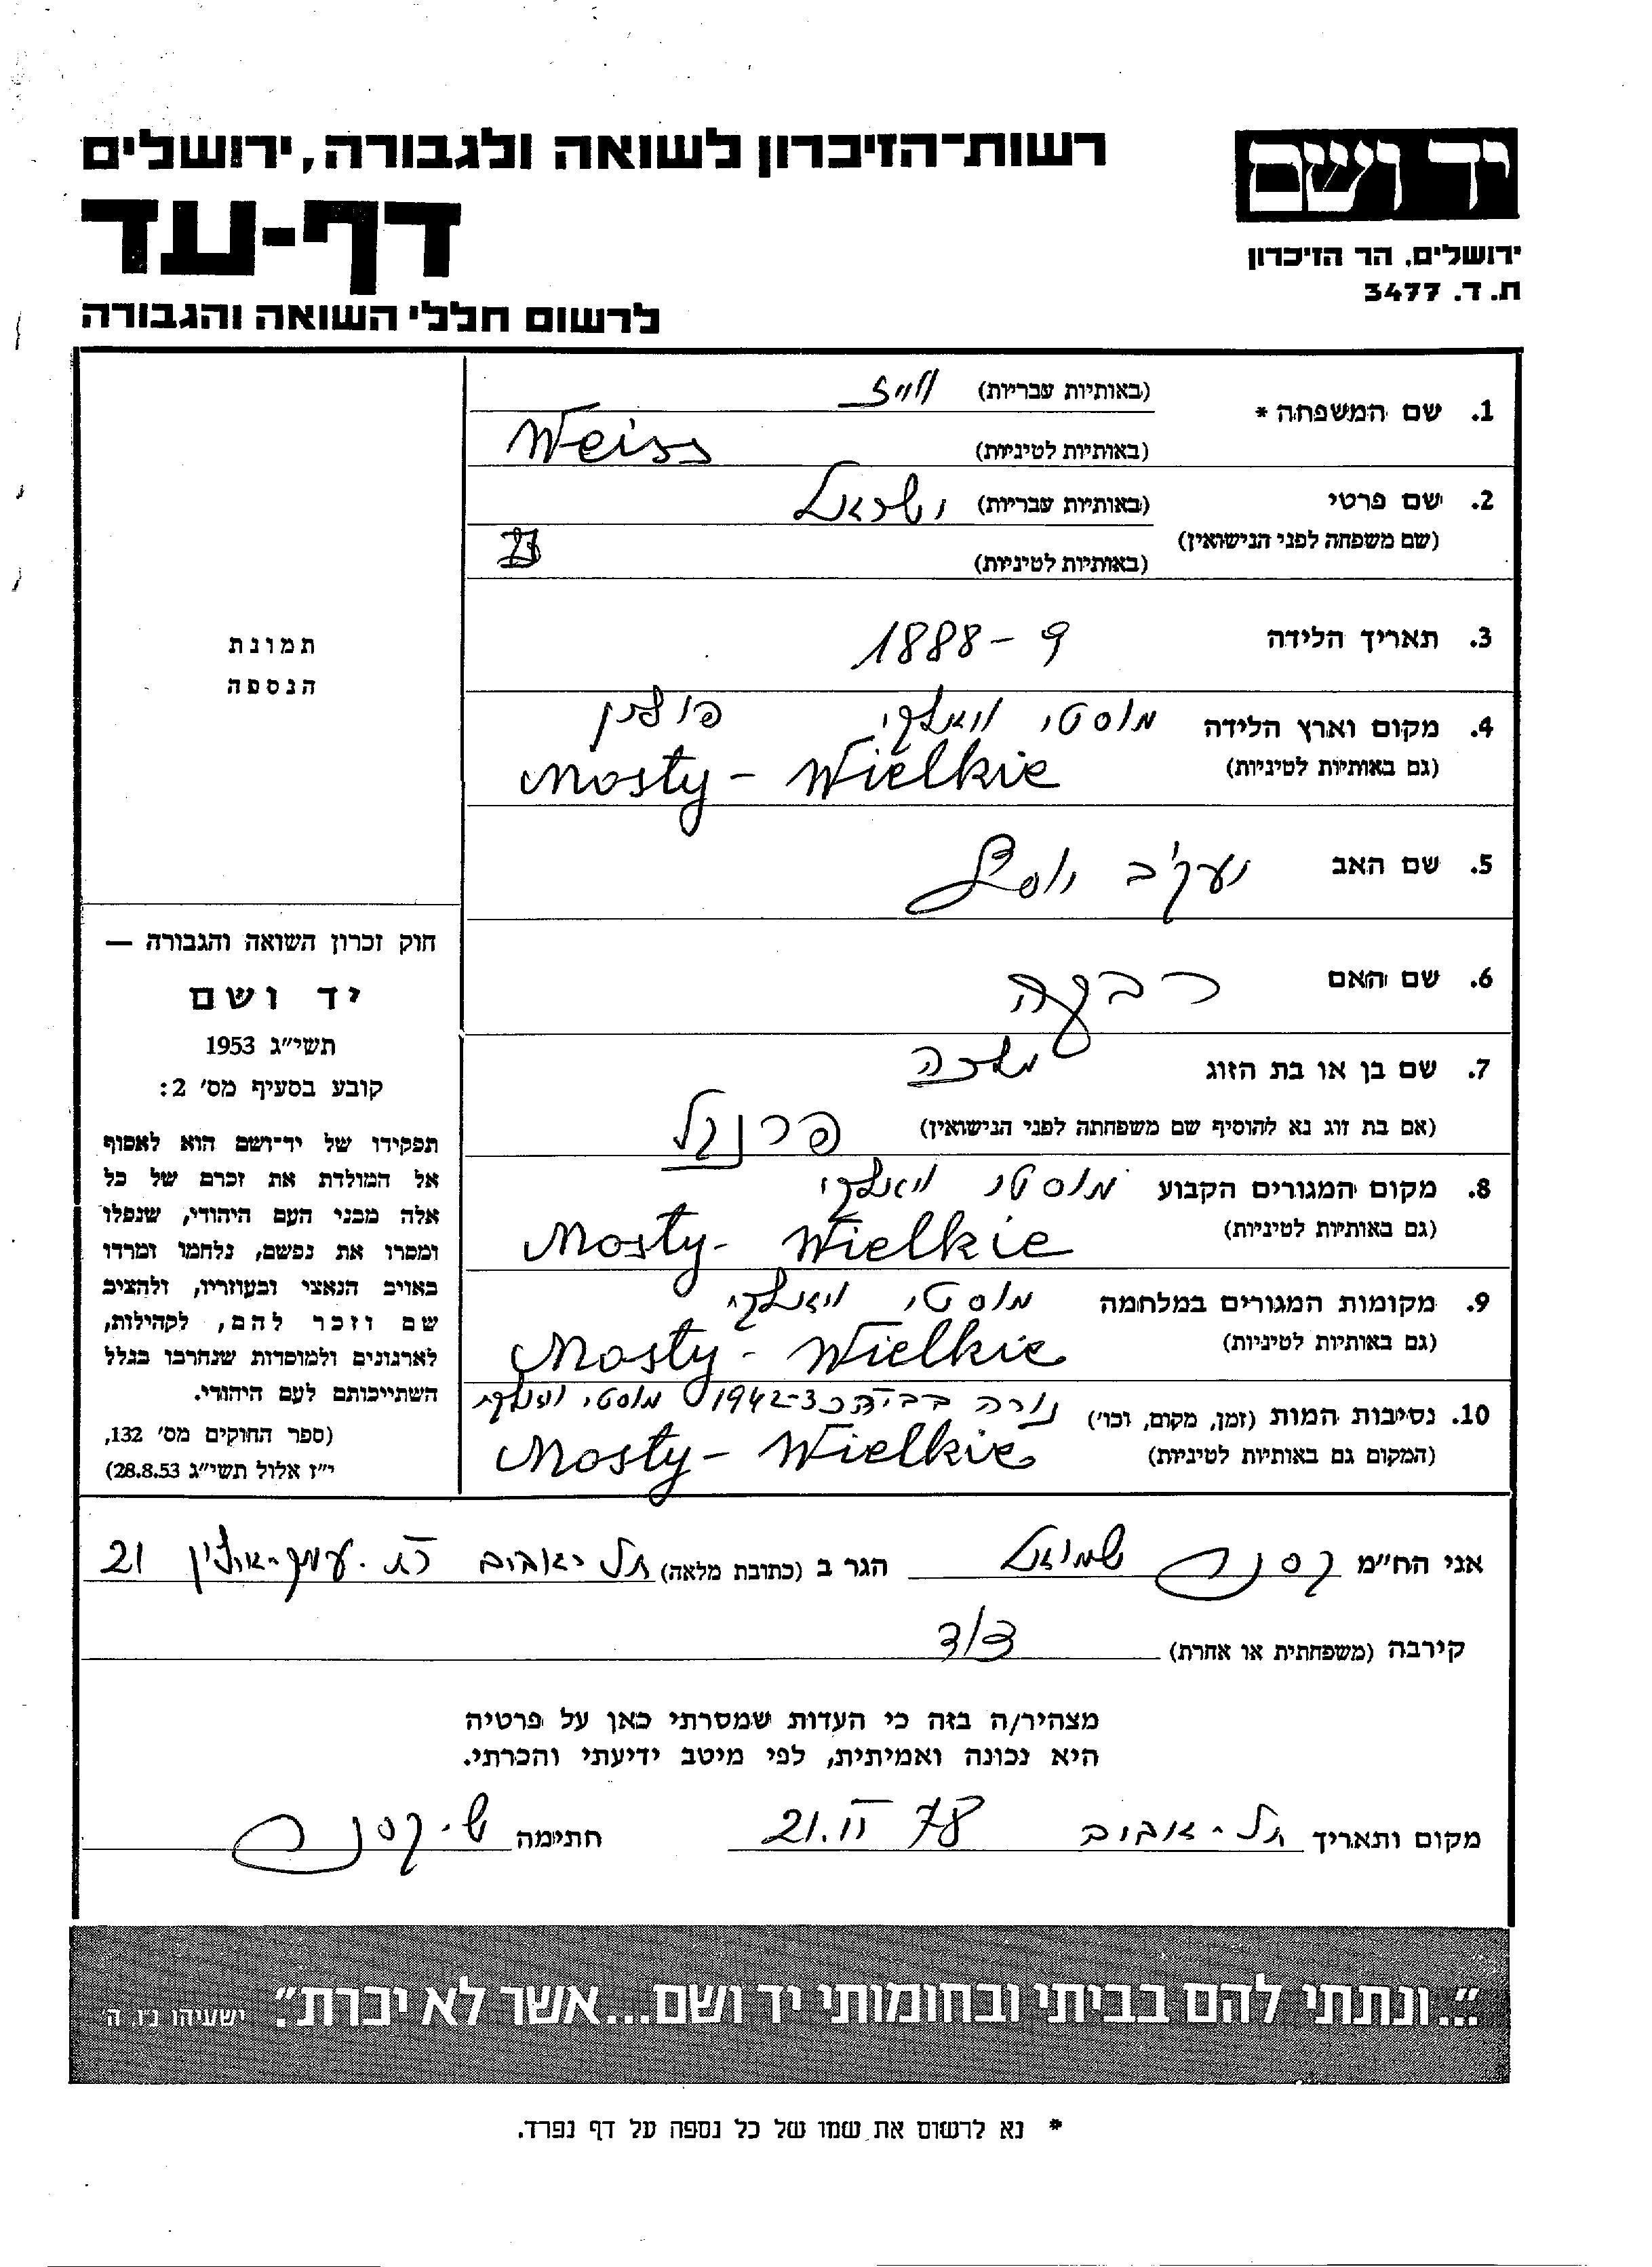 רשות־הזיכרון לשואה ולגבורה, ירושלים
יד ושם
דף-עד
ירושלים, הר הזיכרון
ת. ד. 3477
לרשום חללי השואה והגבורה
1. שם המשפחה * (באותיות עבריות) ווייס
(באותיות לטיניות) Weiss
2. שם פרטי (באותיות עבריות) ישראל
(שם משפחה לפני הנישואין)
(באותיות לטיניות)
3. תאריך הלידה 1888-9
תמונת
הנספה
4. מקום וארץ הלידה מוסטי וויאלקי פולין
(גם באותיות לטיניות) Mosty - Wielkie
5. שם האב יעקב יוסף
6. שם האם רבקה
7. שם בן או בת הזוג שרה
(אם בת זוג נא להוסיף שם משפחתה לפני הנישואין) פרנקל
8. מקום המגורים הקבוע מוסטי וויאלקי
(גם באותיות לטיניות) Mosty - Wielkie
9. מקומות המגורים במלחמה מוסטי וויאלקי
(גם באותיות לטיניות) Mosty - Wielkie
10. נסיבות המות (זמן, מקום, וכו') נורה 1942-3 מוסטי וויאלקי
(המקום גם באותיות לטיניות) Mosty - Wielkie
חוק זכרון השואה והגבורה —
יד ושם
תשי"ג 1953
קובע בסעיף מס' 2:
תפקידו של יד־ושם הוא לאסוף
אל המולדת את זכרם של כל
אלה מבני העם היהודי, שנפלו
ומסרו את נפשם, נלחמו ומרדו
באויב הנאצי ובעוזריו, ולהציב
שם וזכר להם, לקהילות,
לארגונים ולמוסדות שנחרבו בגלל
השתייכותם לעם היהודי.
(ספר החוקים מס' 132,
י"ז אלול תשי"ג 28.8.53)
אני הח"מ קסנר שמואל הגר ב (כתובת מלאה) תל-אביב 21
קירבה (משפחתית או אחרת) דוד
מצהיר/ה בזה כי העדות שמסרתי כאן על פרטיה
היא נכונה ואמיתית, לפי מיטב ידיעתי והכרתי.
מקום ותאריך תל-אביב 21.II 78 חתימה ש. קסנר
"...ונתתי להם בביתי ובחומותי יד ושם...אשר לא יכרת". ישעיהו נ"ו, ה'
* נא לרשום את שמו של כל נספה על דף נפרד.